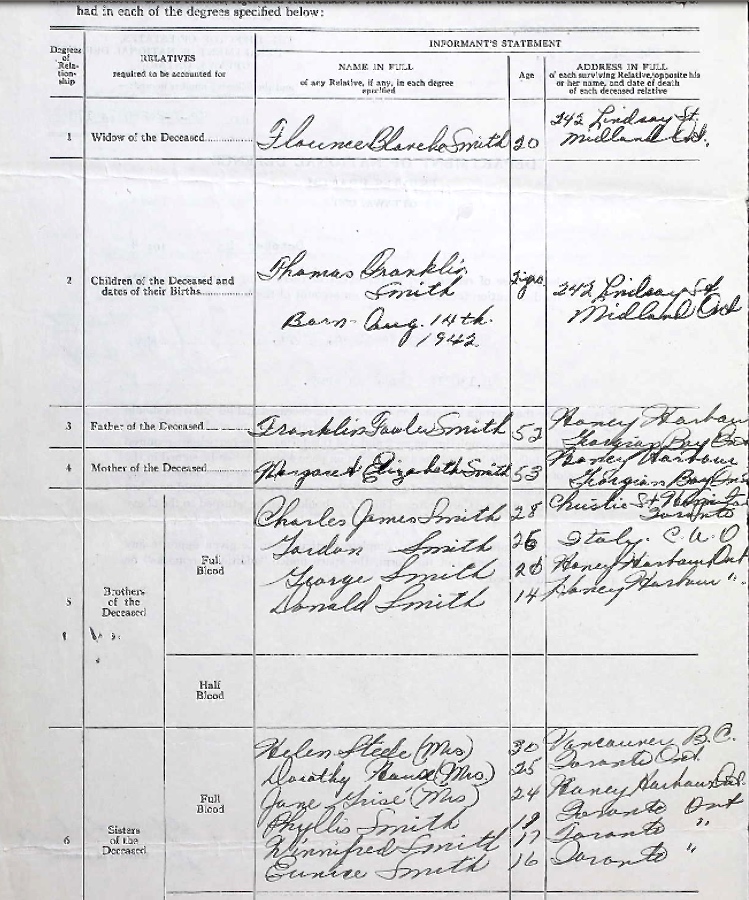 had in each of the degrees specified below:
Degrees of Rela- tion- ship
RELATIVES
required to be accounted for
INFORMANT'S STATEMENT
NAME IN FULL
of any Relative, if any, in each degree
specified
Age
ADDRESS IN FULL
of each surviving Relative, opposite his
or her name, and date of death
of each deceased relative
1 Widow of the Deceased
Florence Blanche Smith 20
242 Lindsay St.
Midland Ont.
2 Children of the Deceased and
dates of their Births
Thomas Franklin
Smith
Born - Aug. 14th.
1942
242 Lindsay St
Midland Ont
3 Father of the Deceased
Franklin Fowler Smith 52
Honey Harbour
Georgian Bay
4 Mother of the Deceased
Margaret Elizabeth Smith 53
Honey Harbour
Georgian Bay Ont
5 Brothers
of the
Deceased
Full
Blood
Charles James Smith 28 Christie St Hospital
Toronto
Gordon Smith 26 Italy.
George Smith 20 Honey Harbour Ont
Donald Smith 14 Honey Harbour "
Half
Blood
6 Sisters
of the
Deceased
Full
Blood
Helen Steele (Mrs) 30 Vancouver B.C.
Dorothy (Mrs.) 25 Toronto Ont.
Jane (Mrs) 24 Honey Harbour Ont.
Phyllis Smith 19 Toronto Ont
Winnifred Smith 17 Toronto "
Eunice Smith 16 Toronto "